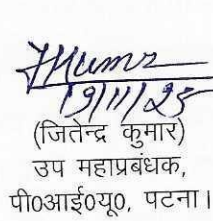 19/11/25
(जितेन्द्र कुमार)
उप महाप्रबंधक,
पी०आई०यू०, पटना।